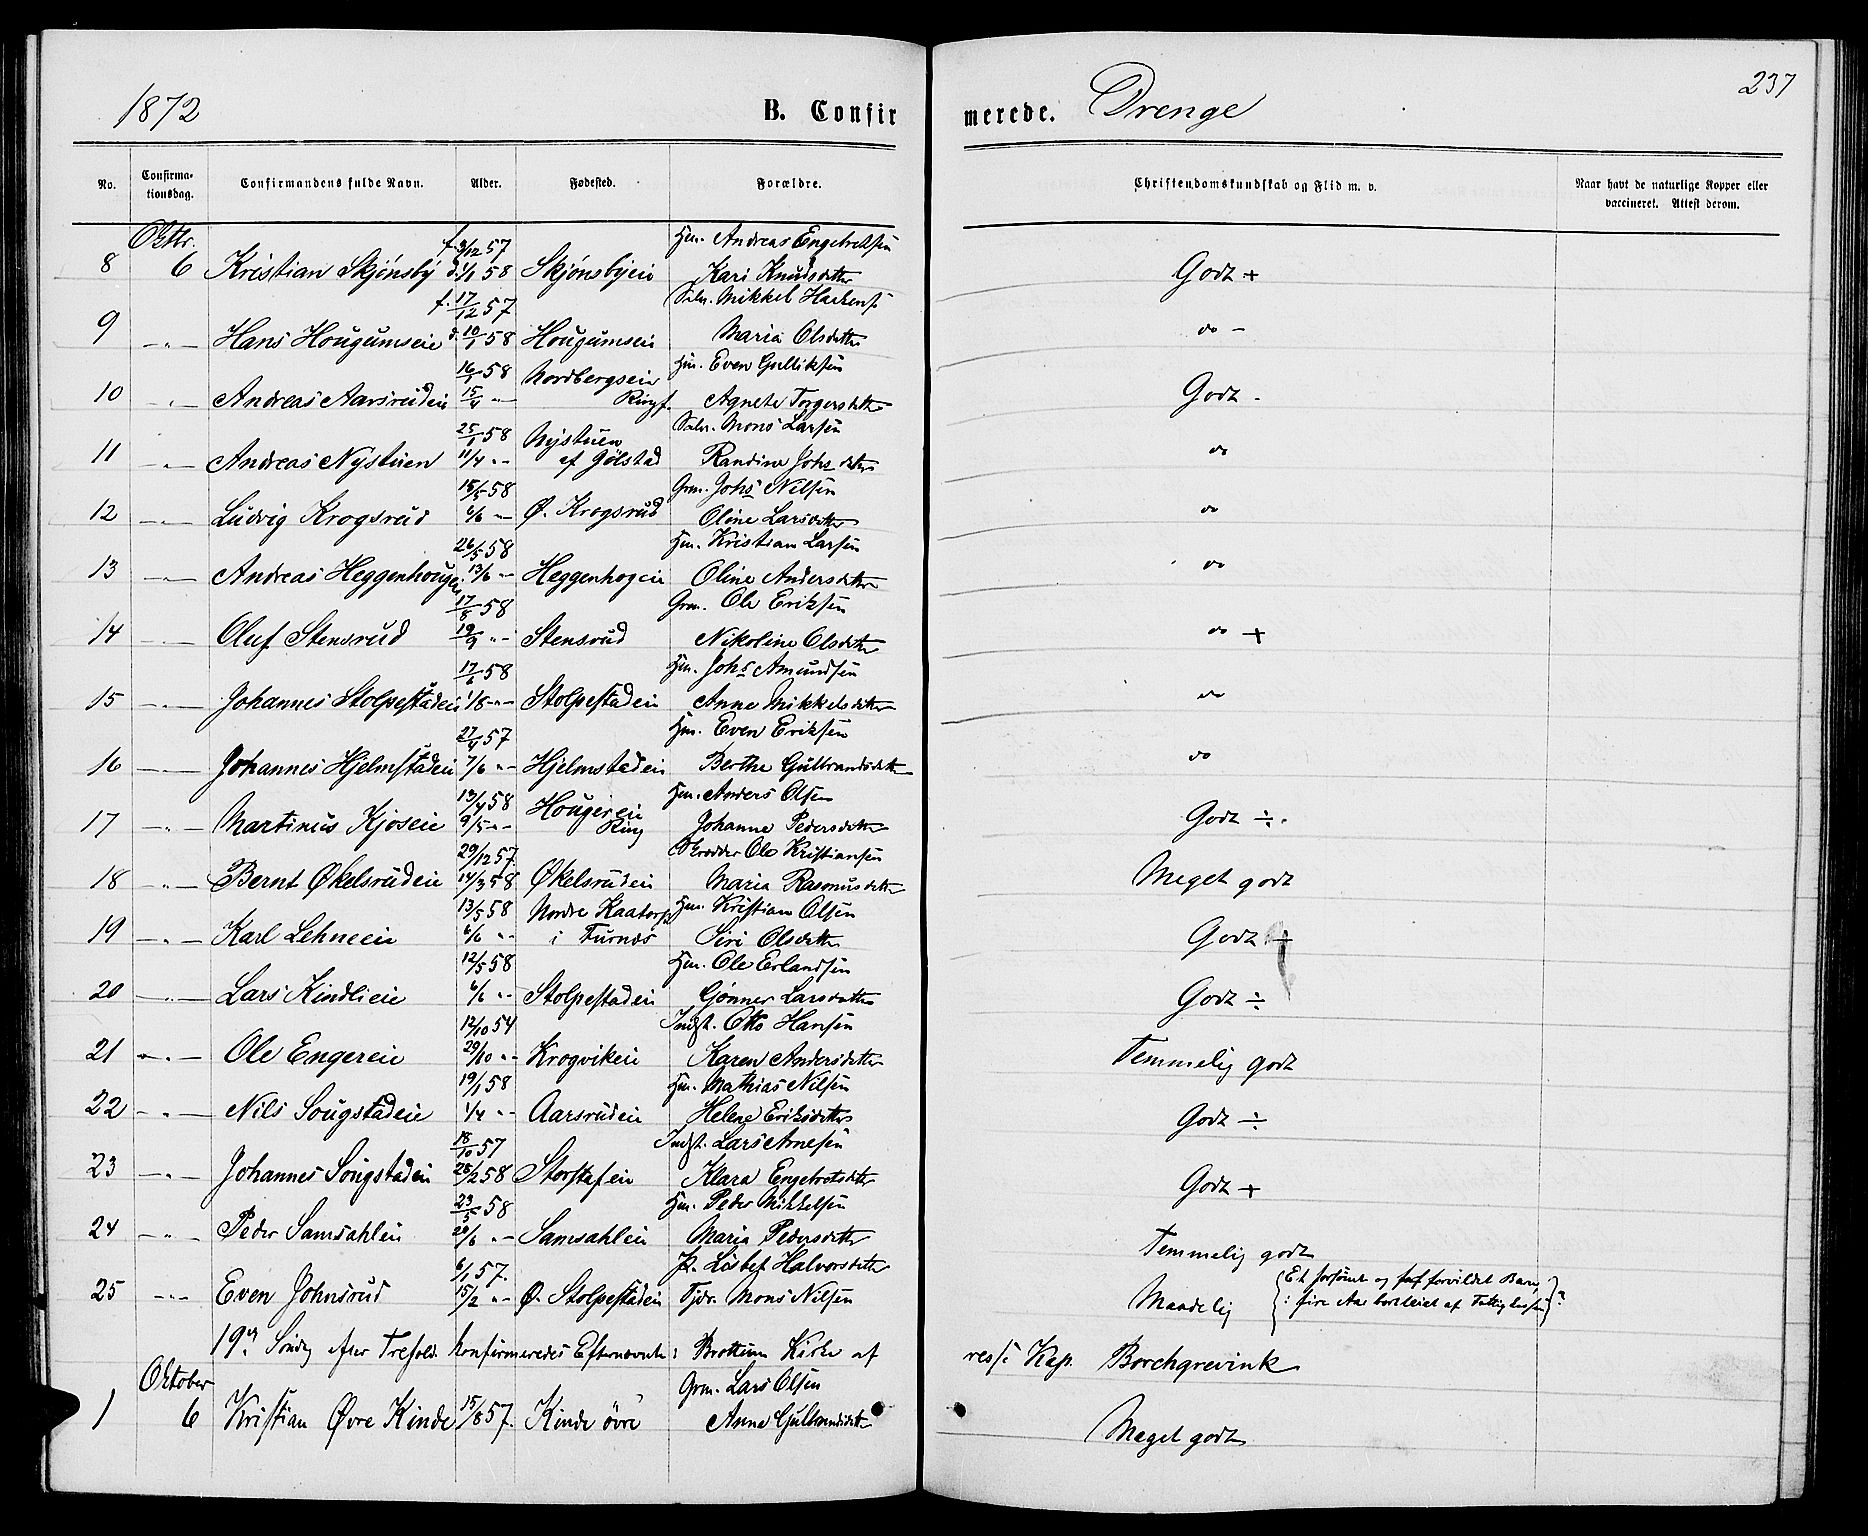 1872
B. Confir merede. Drenge
237
No. Confirma-tionsdag. Confirmandens fulde Navn. Alder. Fødested. Forældre. Christendomskundskab og Flid m. v. Naar havt de naturlige Kopper eller vaccineret. Attest derom.
Oktbr. f. 9/12 57 Hm. Andreas Engebretsen
8 6 Kristian Skjönsby d. 1/1 58 Skjönsbyeie Kari Knudsdatter Godt +
f. 17/12 57 Selv. Mikkel
9 -"- Hans Hougumseie d. 10/1 58 Hougumseie Maria Olsdatter do -
16/1 58 Nordbergseie Hm. Even Gulliksen
10 -"- Andreas Aarsrudeie 15/4 "- Rings. Agnete Torgersdatter Godt -
25/1 58 Nystuen Selv. Mons Larsen
11 -"- Andreas Nystuen 11/4 "- af Gölstad Randine Johsdatter do
15/5 58 Grm. Johs Nilsen
12 -"- Ludvig Krogsrud 6/6 "- Ø. Krogsrud Oline Larsdatter do
26/5 58 Hm. Kristian Larsen
13 -"- Andreas Heggenhougen 13/6 "- Heggenhogeie Oline Andersdatter do
17/8 58 Grm. Ole Eriksen
14 -"- Oluf Stensrud 19/9 "- Stensrud Nikoline Olsdatter do +
17/6 58 Hm. Johs Amundsen
15 -"- Johannes Stolpestadeie 1/8 "- Stolpestadeie Anne Mikkelsdatter do
27/4 57 Hm. Even Eriksen
16 -"- Johannes Hjelmstadeie 7/6 "- Hjelmstadeie Berthe Gulbrandsdatter do
13/4 58 Hougereie Hm. Anders Olsen
17 -"- Martinus Kjoseie 9/5 "- Ring Johanne Pedersdatter Godt ÷.
29/12 57. Skrædder Ole Kristiansen
18 -"- Bernt Økelsrudeie 14/3 58 Økelsrudeie Maria Rasmusdatter Meget godt
13/5 58 Nordre Kaatorp Hm. Kristian Olsen
19 -"- Karl Lehneeie 6/6 "- i Furnæs Siri Olsdatter Godt
12/5 58 Hm. Ole Erlandsen
20 -"- Lars Kindlieie 6/6 "- Stolpestadeie Gönner Larsdatter Godt ÷
12/10 54 Indst. Otto Hansen
21 -"- Ole Engereie 29/10 "- Krogvikeie Karen Andersdatter Temmelig godt
19/1 58 Hm. Mathias Nilsen
22 -"- Nils Sougstadeie 1/4 "- Aarsrudeie Helene Eriksdatter Godt ÷
18/10 57 Indst. Lars Arnesen
23 -"- Johannes Sougstadeie 28/2 58 Storstafeie Klara Engebretsdatter Godt +
23/5 58 Hm. Peder Mikkelsen
24 -"- Peder Samsahleie 29/6 "- Samsahleie Maria Pedersdatter Temmelig godt
6/1 57. P. Lisbet Halvorsdatter
25 -"- Even Johnsrud 15/2 "- Ø. Stolpestadeie Tjdr. Mons Nilsen Maadelig {Et forsömt og forvildet Barn, : fire Aar bortleiet af}?
19de Söndag efter Trefold. konfirmeredes Efternævnte i Brøttum Kirke af res. Kap. Borchgrevink
Oktober Grm. Lars Olsen
1 6 Kristian Øvre Kinde 15/8 57. Kinde övre Anne Gulbrandsdatter Meget godt